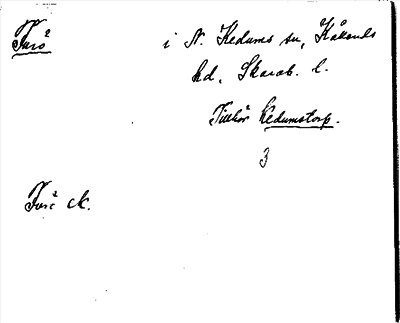 Furö i N. Kedums sn, Kåkinds
hd, Skarab. l.
Tillhör Kedumstorp.
3
Furö ck.